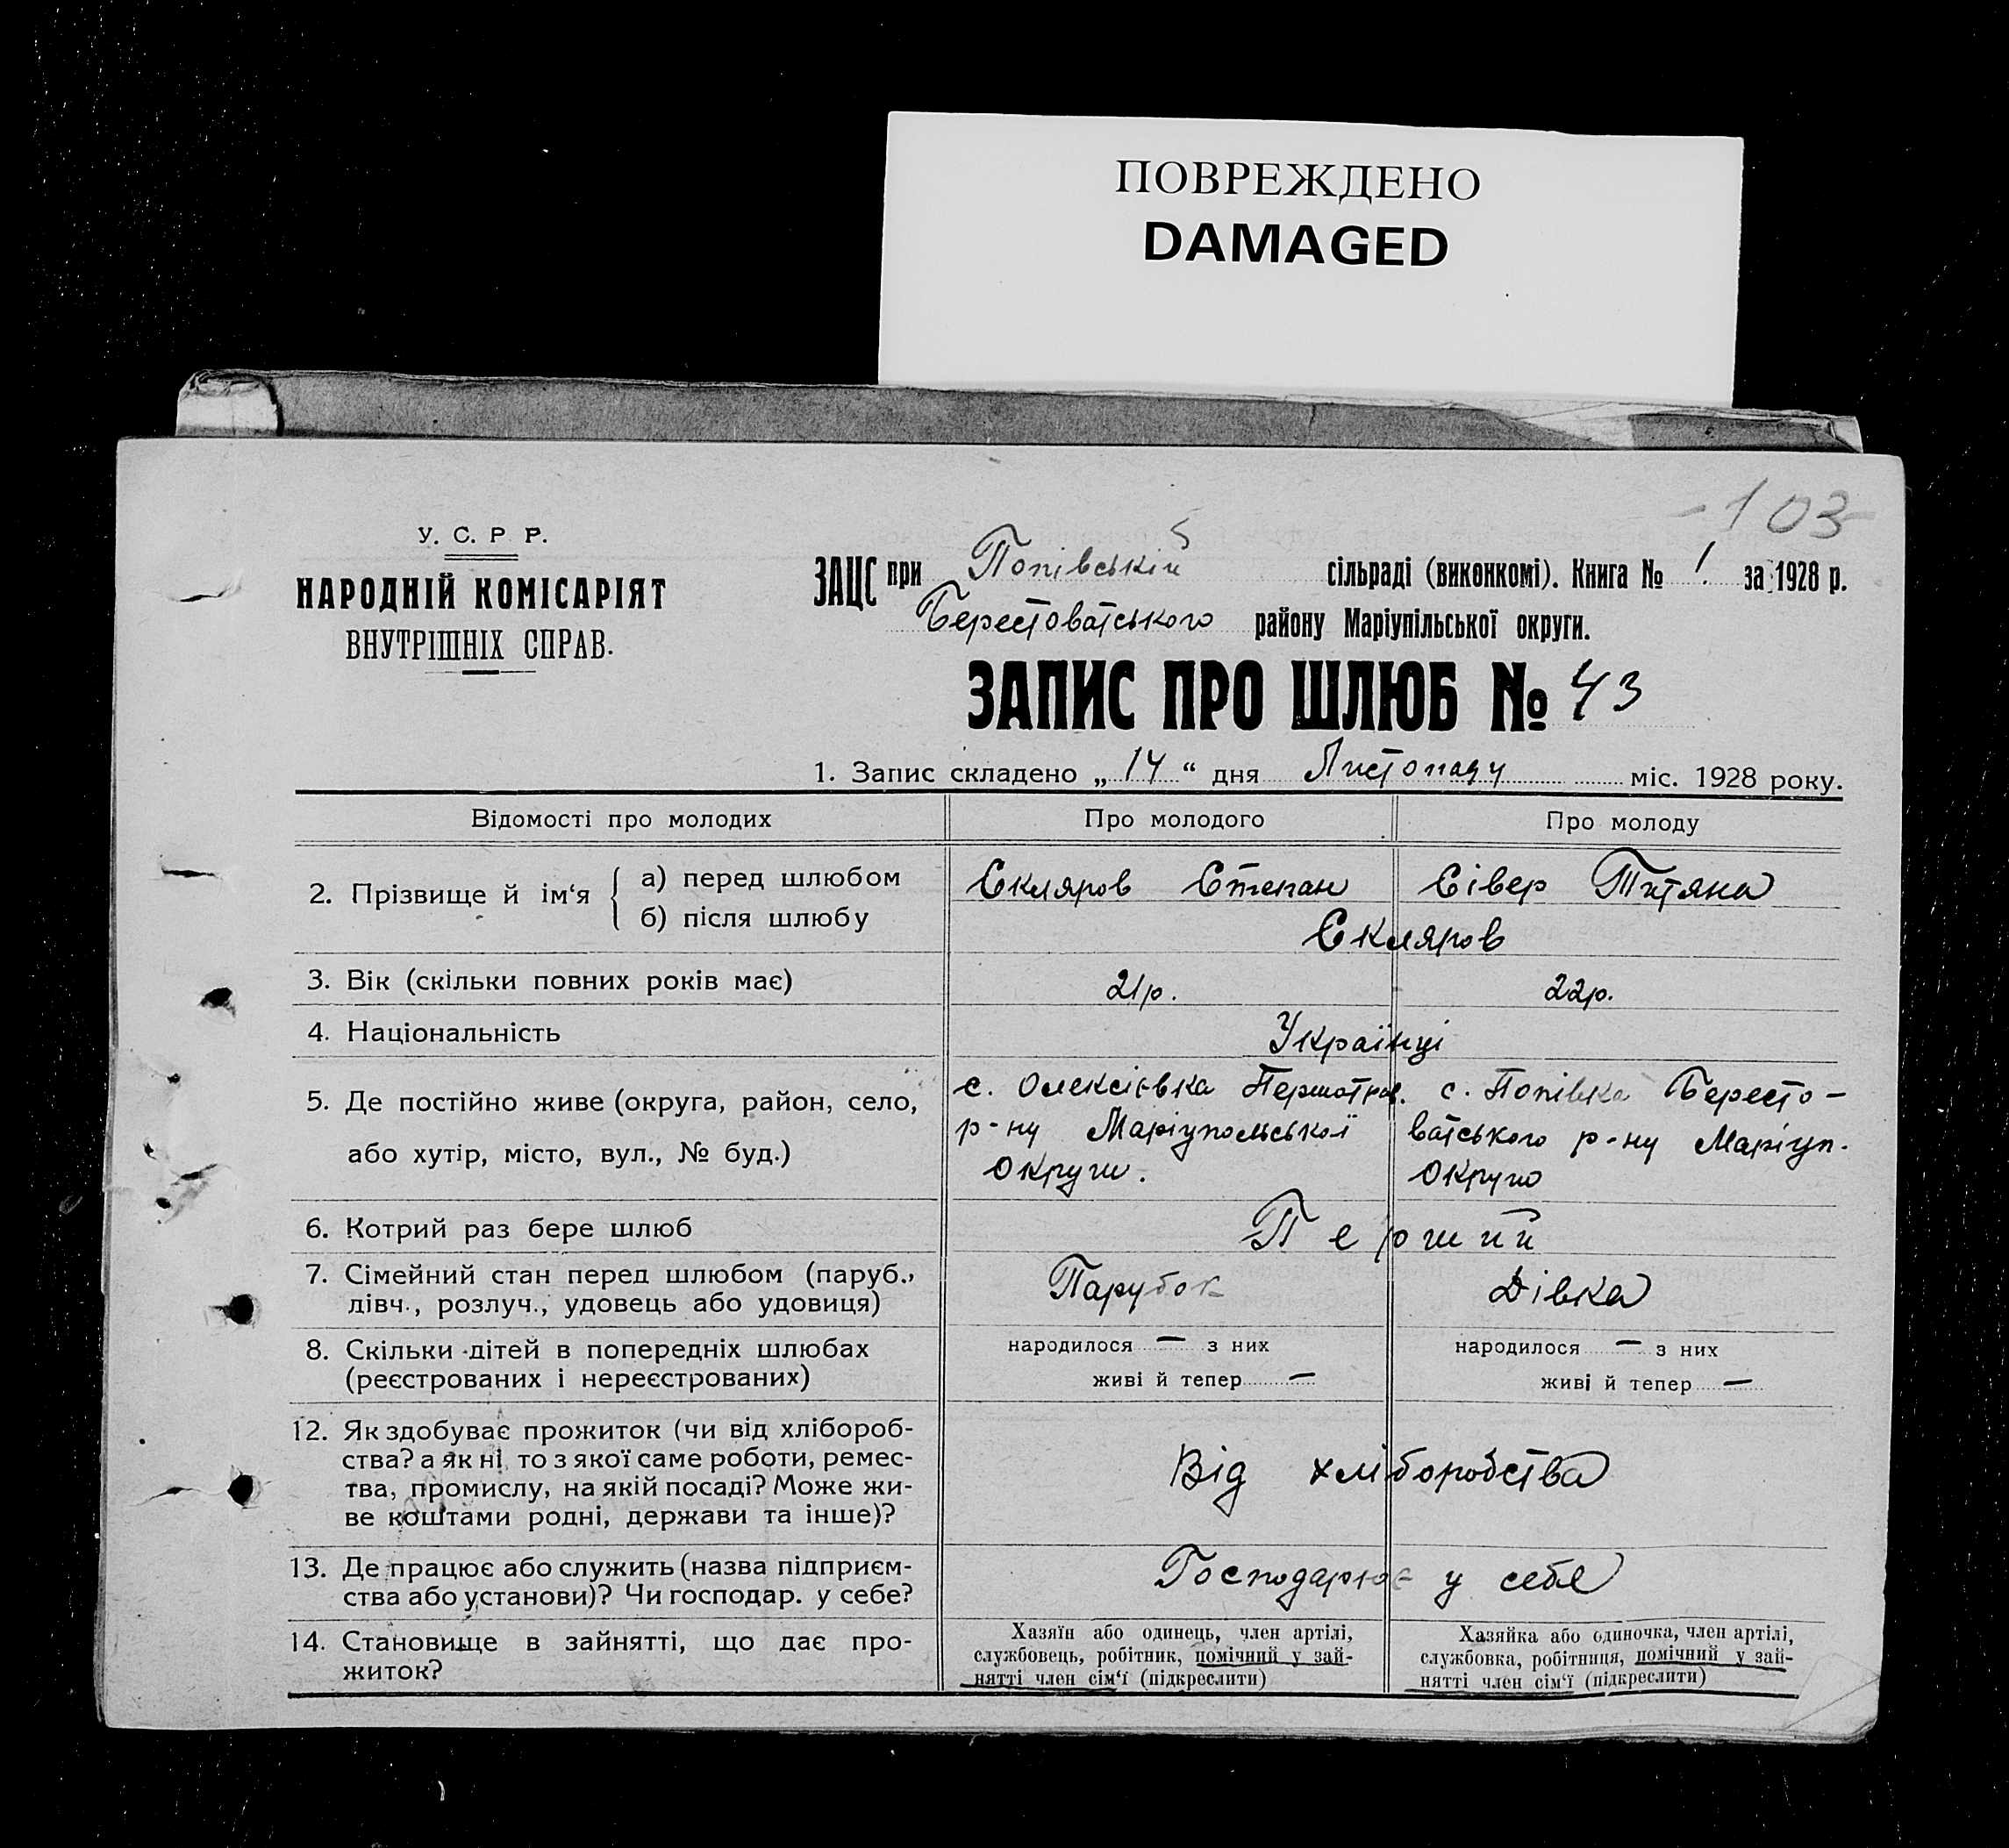 ПОВРЕЖДЕНО
DAMAGED
-103-
У. С. Р Р.
НАРОДНІЙ КОМІСАРІЯТ
ВНУТРІШНІХ СПРАВ.
ЗАЦС при Попівській сільраді (виконкомі). Книга № 1. за 1928 р.
Берестоватського району Маріупільської округи.
ЗАПИС ПРО ШЛЮБ № 43
1. Запис складено „ 14 “ дня Листопаду міс. 1928 року.
Відомості про молодих Про молодого Про молоду
2. Прізвище й ім‘я
а) перед шлюбом Скляров Степан Сівер Титяна
б) після шлюбу Скляров
3. Вік (скільки повних років має) 21р. 22р.
4. Національність Українці
5. Де постійно живе (округа, район, село,
або хутір, місто, вул., № буд.)
с. Олексієвка Першотрав.
р-ну Маріупольської
Округи.
с. Попівка Бересто-
ватського р-ну Маріуп.
Округи
6. Котрий раз бере шлюб Перший
7. Сімейний стан перед шлюбом (паруб.,
дівч., розлуч., удовець або удовиця)
Парубок Дівка
8. Скільки дітей в попередніх шлюбах
(реєстрованих і нереєстрованих)
народилося — з них
живі й тепер —
народилося — з них
живі й тепер —
12. Як здобуває прожиток (чи від хлібороб-
ства? а як ні то з якої саме роботи, ремес-
тва, промислу, на якій посаді? Може жи-
ве коштами родні, держави та інше)?
Від хліборобства
13. Де працює або служить (назва підприєм-
ства або установи)? Чи господар. у себе?
Господарює у себе
14. Становище в зайнятті, що дає про-
житок?
Хазяїн або одинець, член артілі,
службовець, робітник, помічний у зай-
нятті член сім‘ї (підкреслити)
Хазяйка або одиночка, член артілі,
службовка, робітниця, помічний у зай-
нятті член сім‘ї (підкреслити)